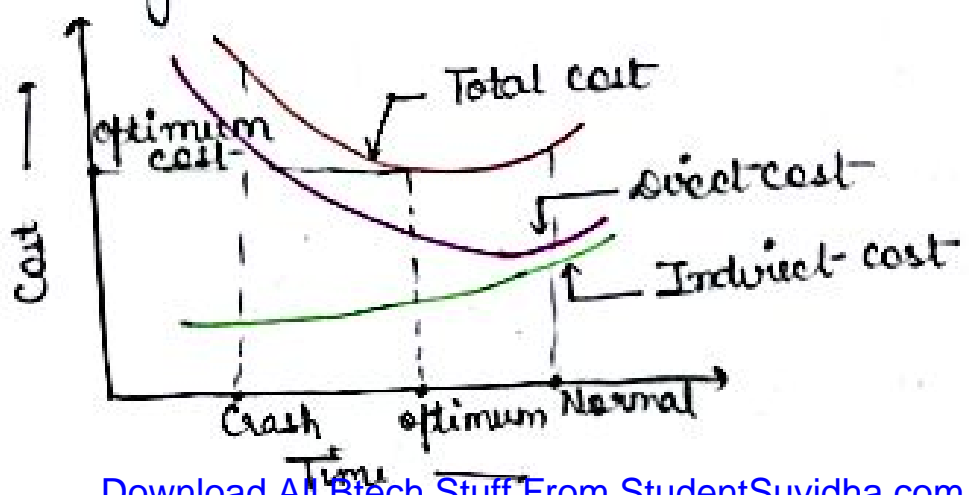 Total cost
optimum
cost
Direct cost
Indirect cost
Cost
Crash
optimum
Normal
Time
Download All Btech Stuff From StudentSuvidha.com